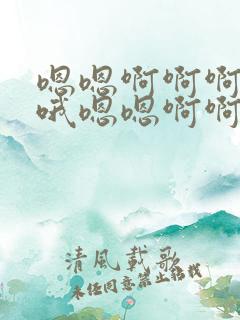 嗯嗯啊啊啊
哦嗯嗯啊啊
清風載歌
未经同意禁止转载